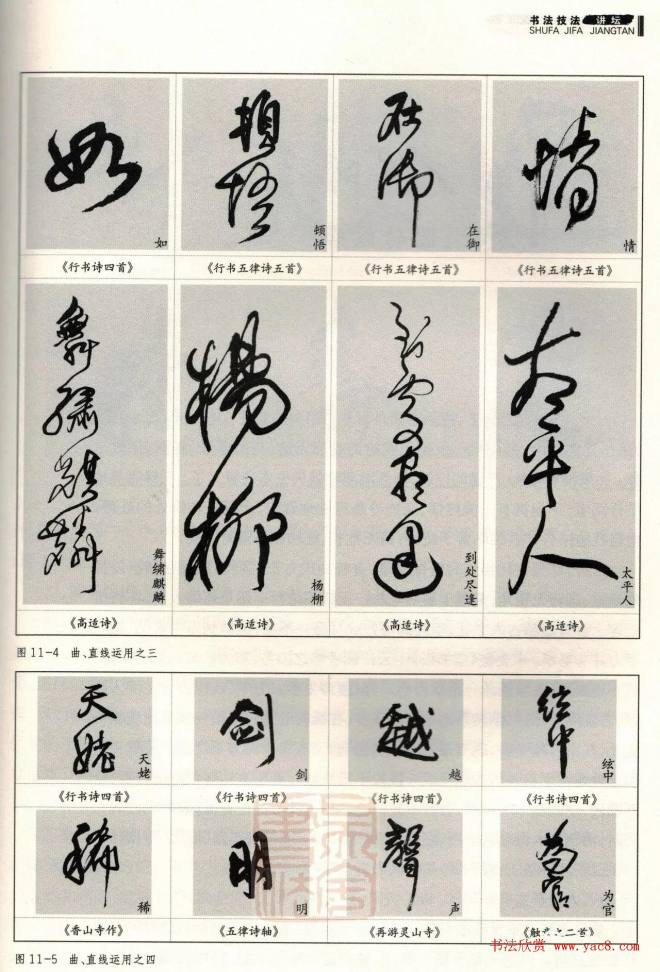 书法技法 讲坛
SHUFA JIFA JIANGTAN
如
顿悟
在御
情
《行书诗四首》
《行书五律诗五首》
《行书五律诗五首》
《行书五律诗五首》
舞绣麒麟
杨柳
到处尽逢
太平人
《高适诗》
《高适诗》
《高适诗》
《高适诗》
图 11-4 曲、直线运用之三
天姥
剑
越
绞中
《行书诗四首》
《行书诗四首》
《行书诗四首》
《行书诗四首》
稀
明
声
为官
《香山寺作》
《五律诗轴》
《再游灵山寺》
二首》
图 11-5 曲、直线运用之四
书法欣赏 www.yac8.com